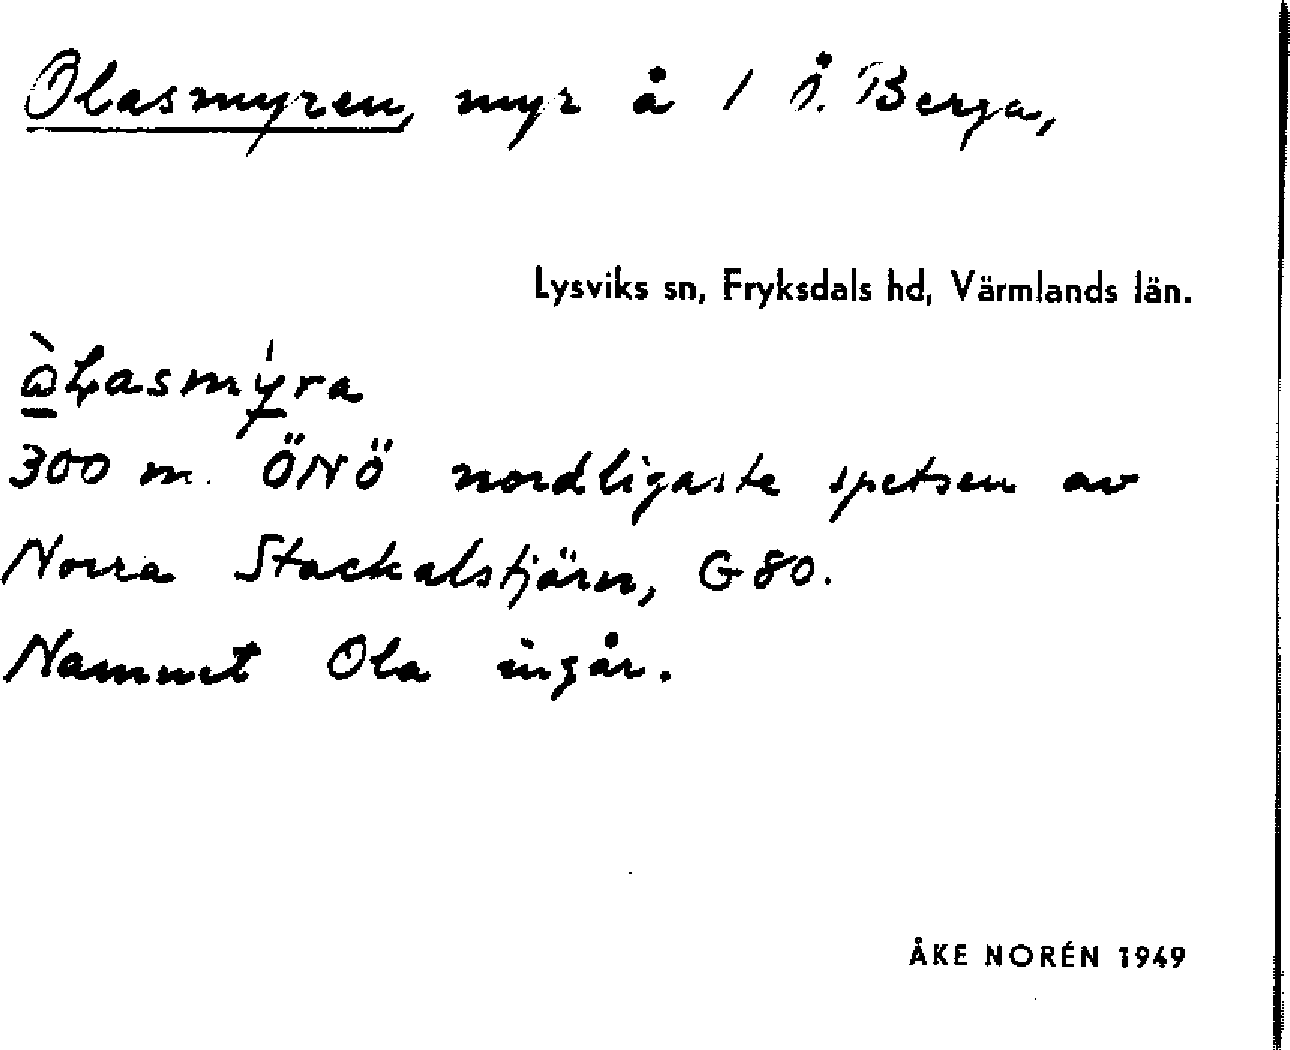 Olasmyren, myr å 1 Ö. Berga,
Lysviks sn, Fryksdals hd, Värmlands län.
300 m. ÖNÖ nordligaste spetsen av
Norra Stackalstjärn, G80.
Namnet Ola ingår.
ÅKE NORÉN 1949